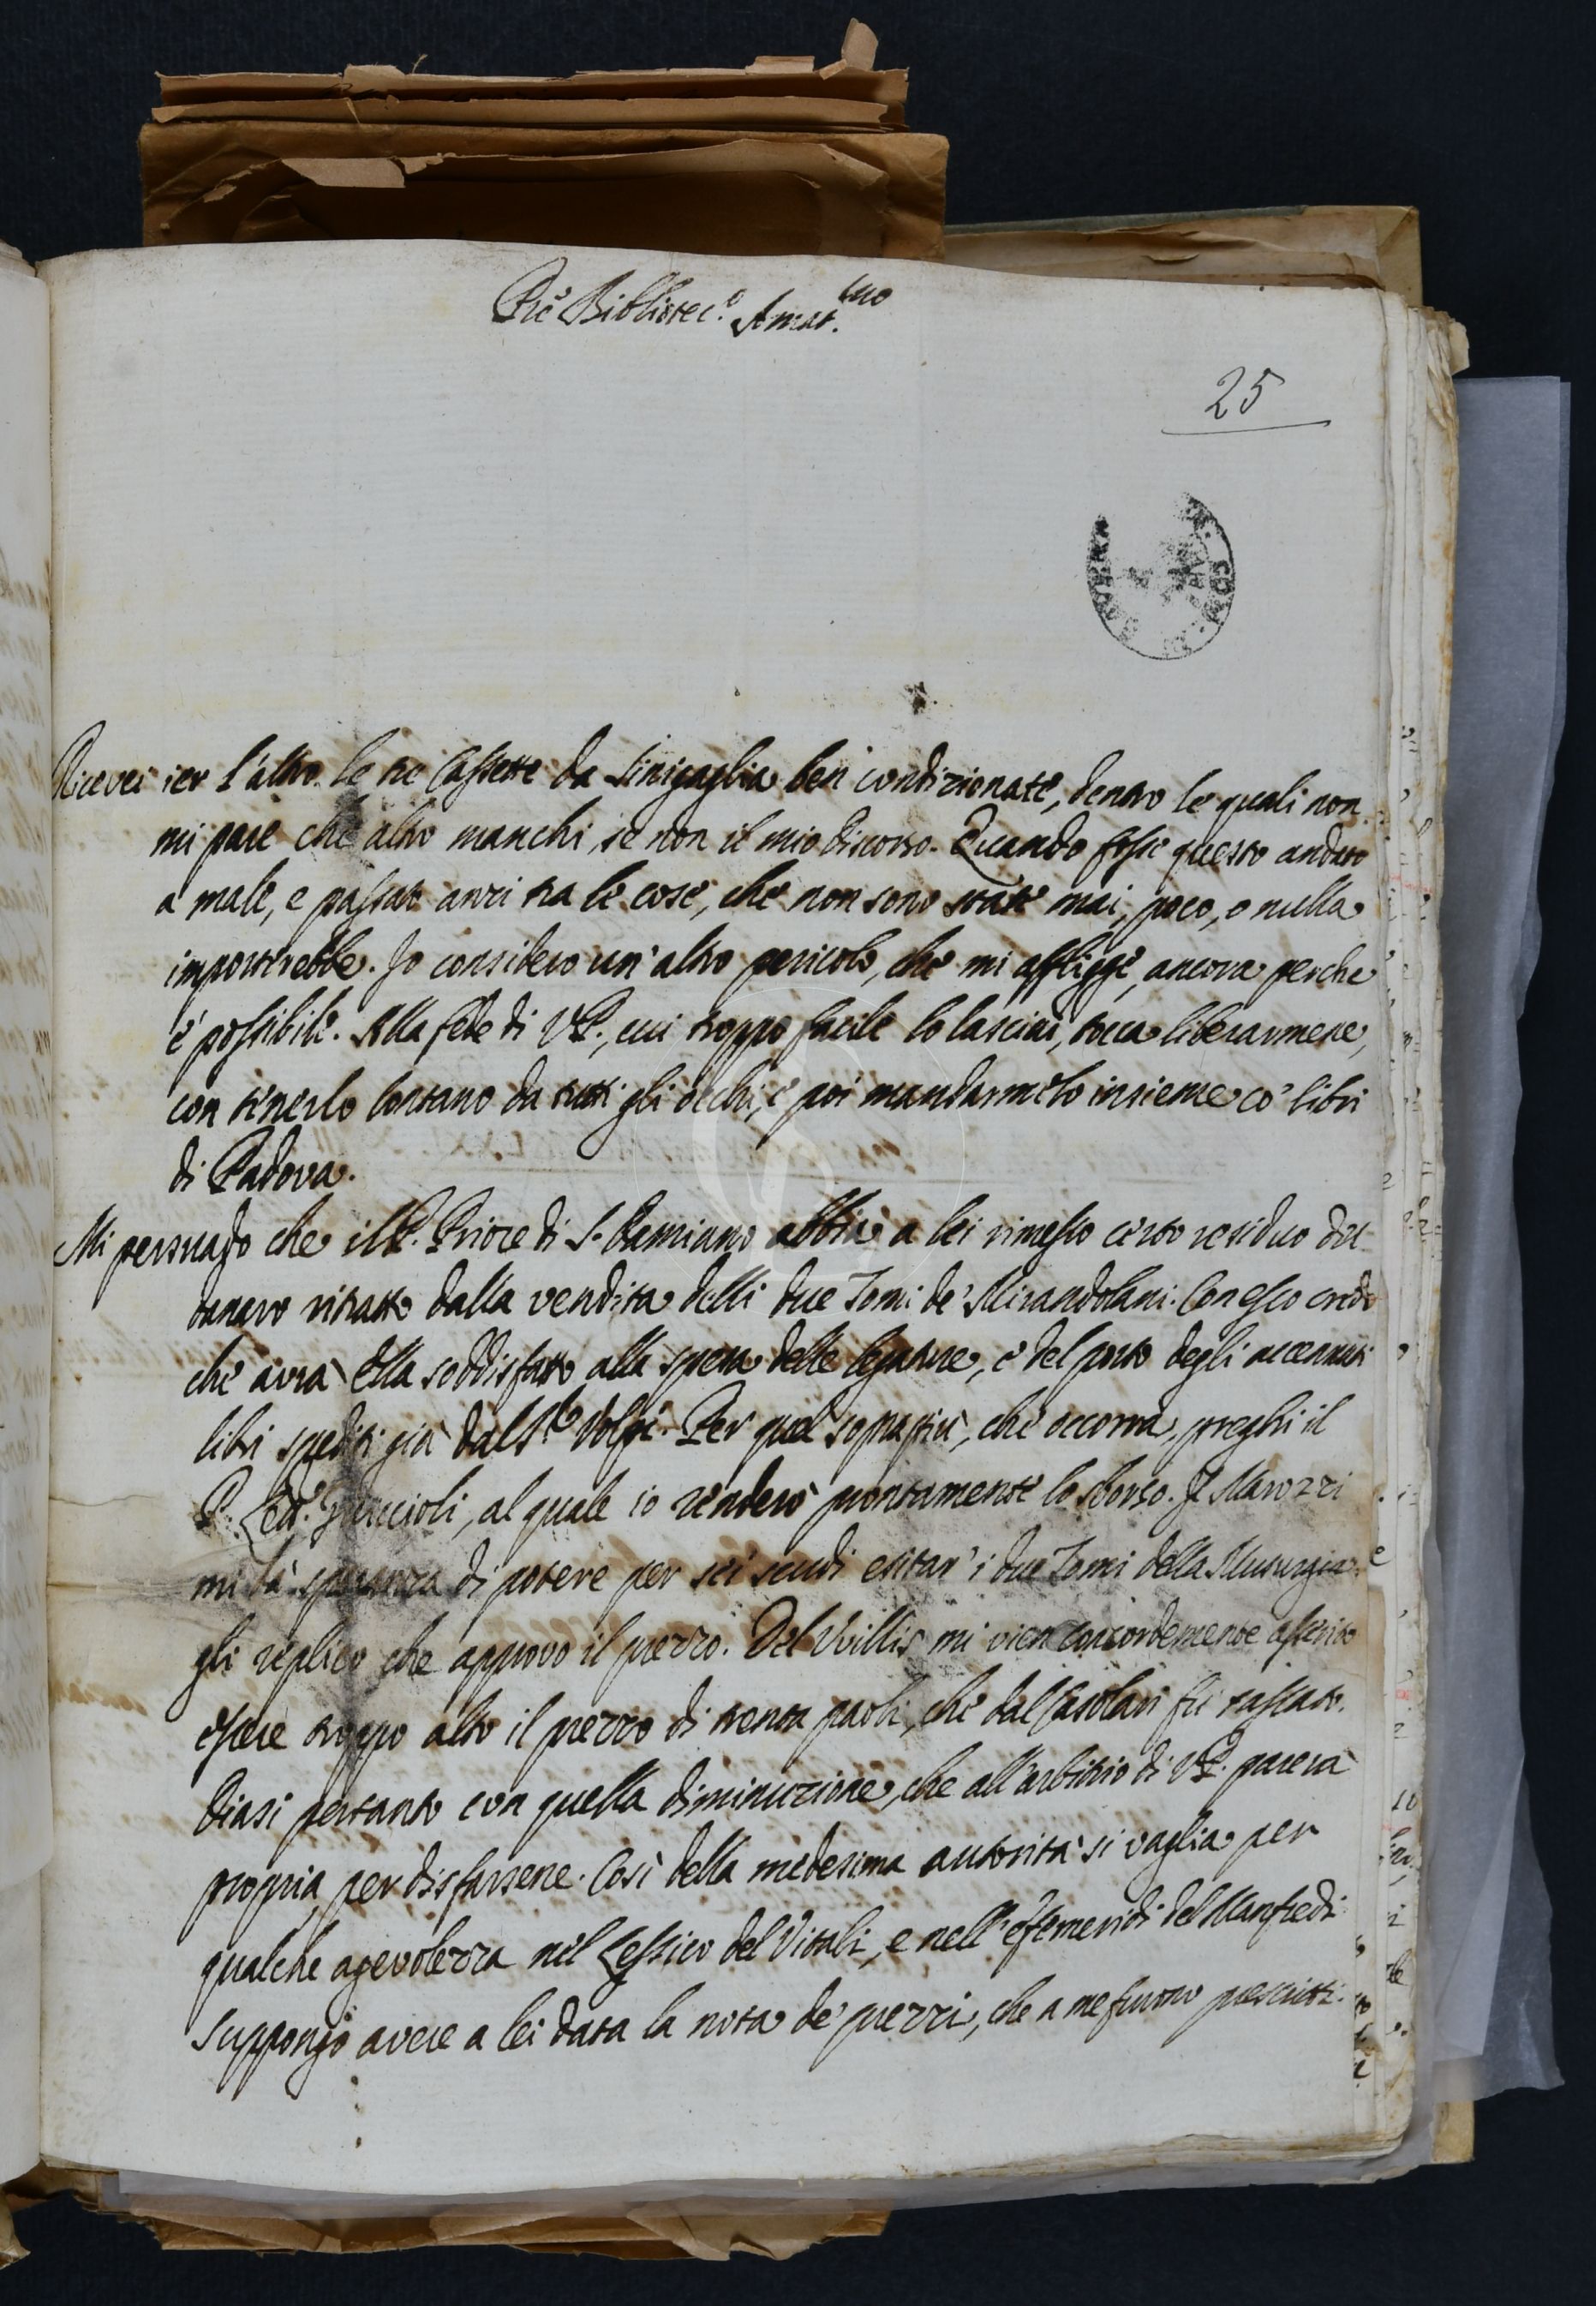 Pre Bibliotec.o Amat.mo
25
Ricevei ier l'altro le tre Cassette da Sinigaglia ben condizionate, dentro le quali non
mi pare che altro manchi, se non il mio discorso. Quando fosse questo andato
a male, e passato anzi tra le cose, che non sono state mai, poco, o nulla
importerebbe. Io considero un' altro pericolo, che mi affligge, ancora perche
è possibile. Alla fede di V.P., cui troppo facile lo lasciai, tocca liberarmene,
con tenerlo lontano da tutti gli occhi, e poi mandarmelo insieme co' libri
di Padova.
Mi persuado che il P. Priore di S. Damiano abbia a lei rimesso certo residuo del
danaro ritratto dalla vendita delli due Tomi de' Mirandolani. Con esso credo
che avrà Ella soddisfatto alla spesa delle legature, e del porto degli accennati
libri spediti già dal S.r Volpi. Per quel soprapiù, che occorra, preghi il
P. Lett.e Guccioli, al quale io renderò prontamente lo sborso. Il Marozzi
mi dà speranza di potere per sei scudi esitar' i due Tomi della Musurgia:
gli replico che approvo il prezzo. Del Vvillis mi vien concordemente asserito
essere troppo alto il prezzo di trenta paoli, che dal Casolari fu tassato.
Diasi pertanto con quella diminuzione, che all'arbitrio di V.P. parerà
propria, per disfarsene. Così della medesima autorità si vaglia per
qualche agevolezza nel Lessico del Vitali, e nell'efemeridi del Manfredi.
Suppongo avere a lei data la nota de' prezzi, che a me furono prescritti.